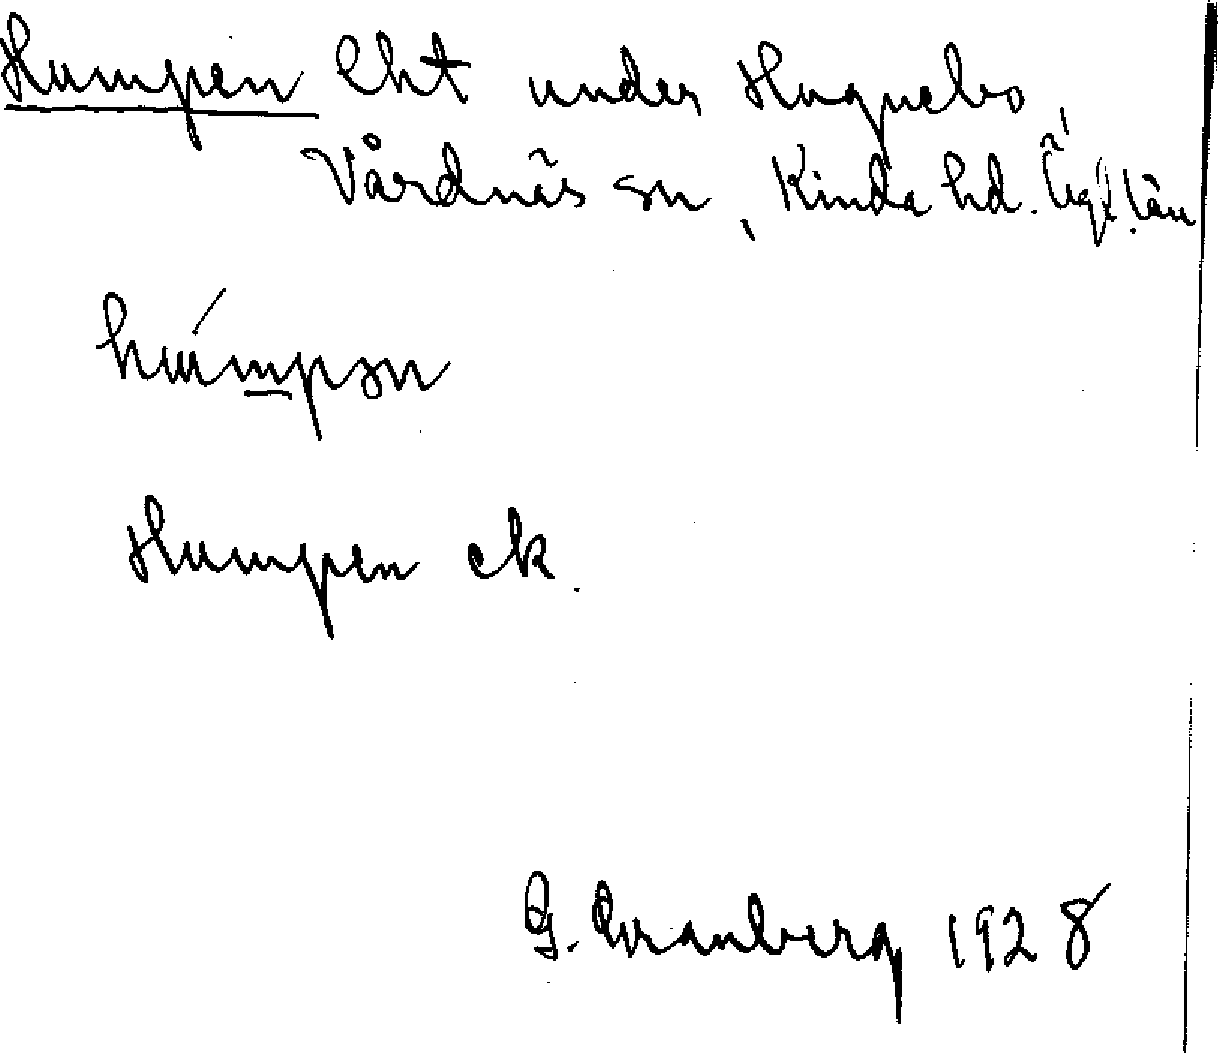 Humpen lht under Hagnebo,
Vårdnäs sn, Kinda hd. Ögl. län
húmpən
Humpen ek.
G. Granberg 1928